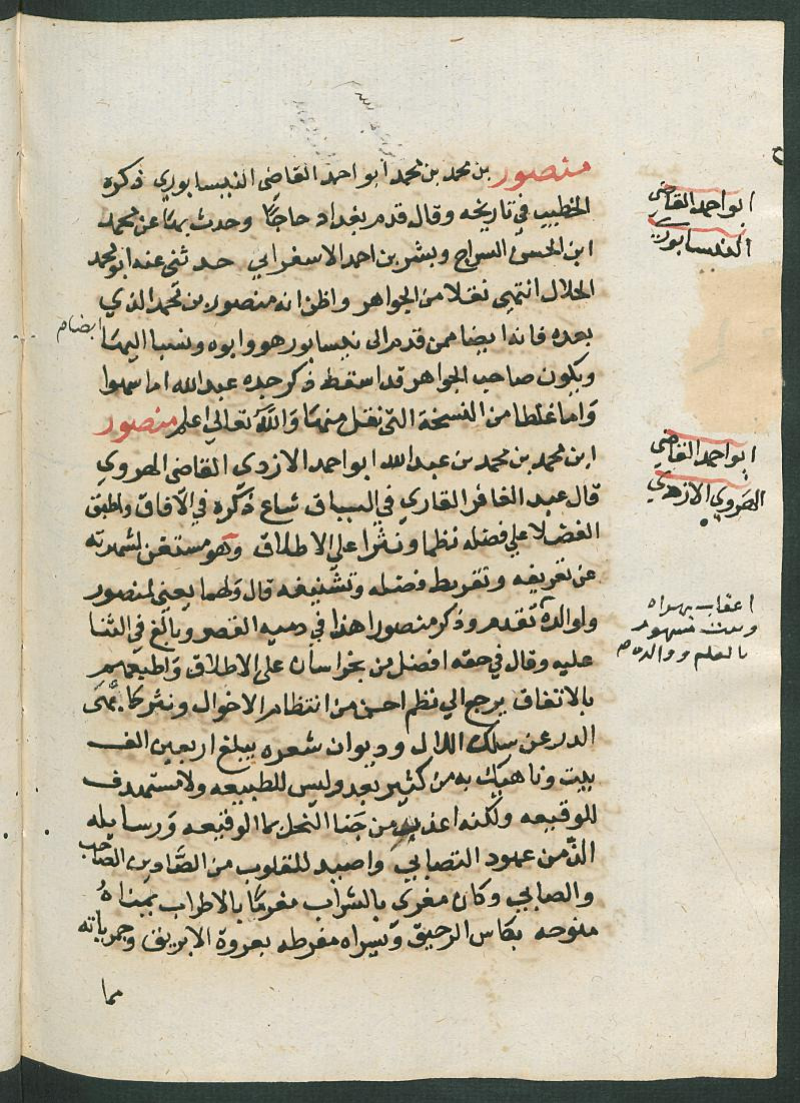 منصور بن محمد بن محمد ابو احمد القاضى النيسابوري ذكره
الخطيب في تاريخه وقال قدم بغداد حاجًا وحدث بها عن محمد
ابن الحسن السراج وبشر بن احمد الاسفرايى حدثنى عنه ابو محمد
الخلال انتهى نقلا من الجواهر واظن انه منصور بن محمد الذي
بعده فانه ايضا ممن قدم الى نيسابور هو وابوه ونسبا اليها ايضا م
ويكون صاحب الجواهر قد اسقط ذكر جده عبد الله اما سهوا
واما غلطا من النسخة التى نقل منها والله تعالى اعلم منصور
ابن محمد بن محمد بن عبد الله ابو احمد الازدي القاضى الهروي
قال عبد الغافر القاري في السياق شاع ذكره في الآفاق واطبق
الفضلا علي فضله نظما ونثرا علي الاطلاق وهو مستغن لشهرته
عن تعريفه وتقريط فضله وتشنيفه قال ولهما يعنى لمنصور
ولوالده تقدم وذكر منصورا هذا في دميه القصر وبالغ في الثنا
عليه وقال في حقه افضل من بخراسان على الاطلاق واطبعهم
بالاتفاق يرجع الي نظم احسن من انتظام الاحوال ونثر كا
الدر عن سلك اللال وديوان شعره يبلغ اربعين الف
بيت وناهيك به من كثير بعد وليس للطبيعه ولا مستهدف
للوقيعه ولكنه اعذب من جنا النحل بما الوقيعه ورسايله
الذ من عهود التصابي واصيد للقلوب من الصادين الصاحب
والصابي وكان مغرى بالشراب مغرما بالاطراب يمناه
متوجه بكاس الرحيق ويسراه مقرطه بعروة الابريق وخمرياته
مما
ابو احمد القاضى
النيسابوري
ابو احمد القاضي
الهروي الازدي
اعقاب بهراه
وبيت مشهور
بالعلم ووالده م